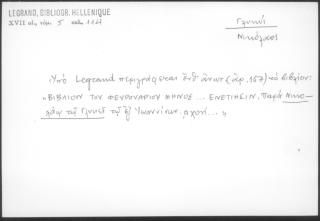 LEGRAND, BIBLIOGR. HELLENIQUE
XVII αἰ. τόμ. 5 σελ. 117
Γλυκύς
Νικόλαος
Ὑπὸ Legrand περιγράφεται ἐνθ' ἀνωτ. (ἀρ. 157) τὸ βιβλίον:
"ΒΙΒΛΙΟΝ ΤΟΥ ΦΕΥΡΟΥΑΡΙΟΥ ΜΗΝΟΣ... ΕΝΕΤΙΗΣΙΝ, παρὰ Νικο-
λάῳ τῷ Γλυκεῖ τῷ ἐξ Ἰωαννίνων, αχπη'..."